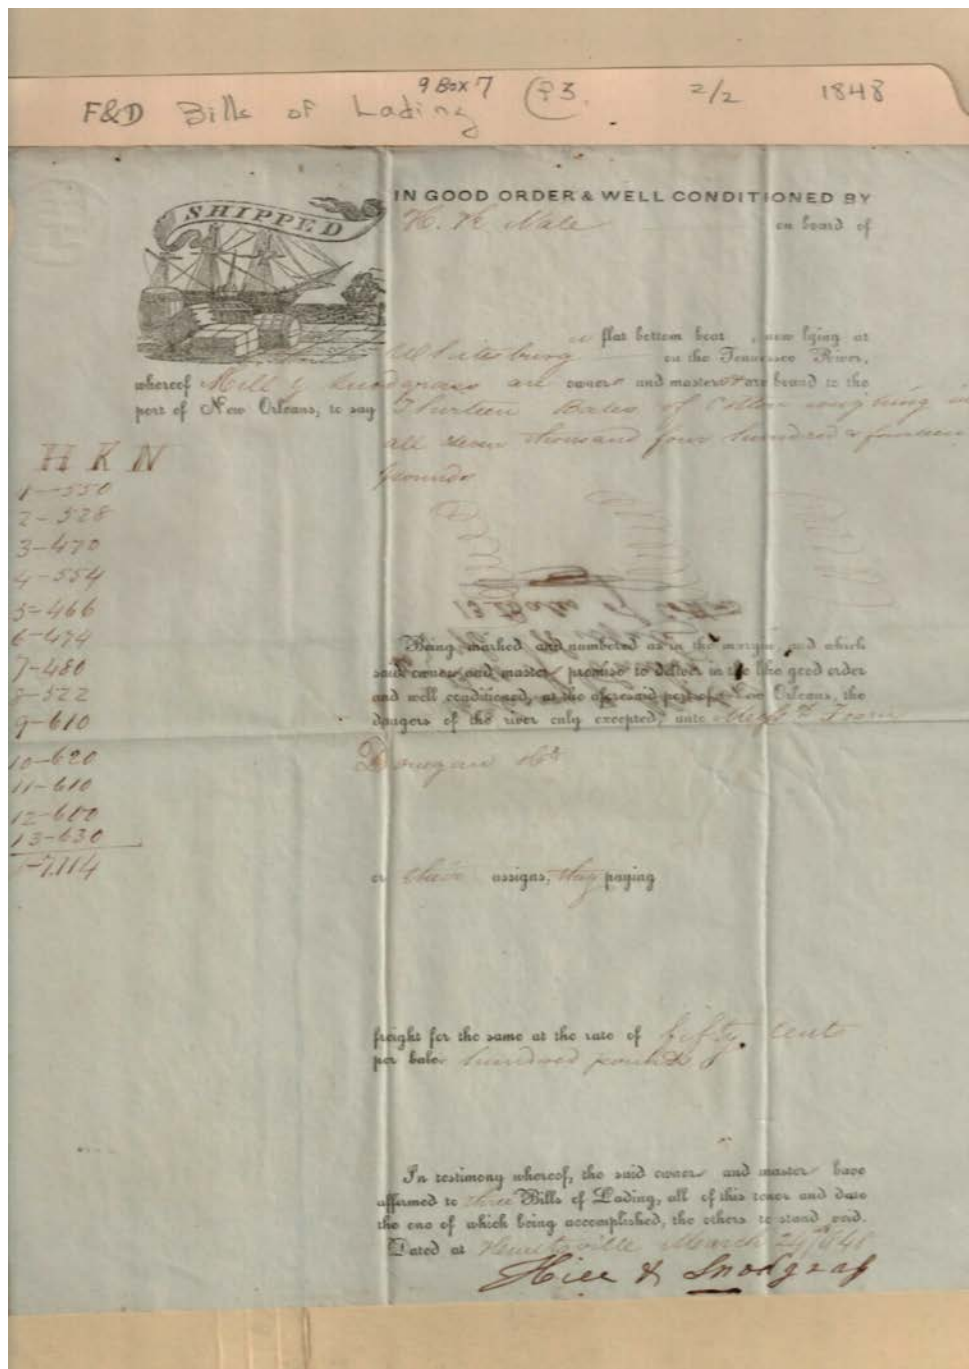 9 Box 7 P3. 2/2 1848
F&D Bills of Lading
SHIPPED
IN GOOD ORDER & WELL CONDITIONED BY
H. K Nale on board of
a flat bottom boat now lying at
Whitesburg on the Tennessee River,
whereof Hill & Snodgrass are owners and masters are board to the
port of New Orleans, to say Thirteen Bales of Cotton weighing in
all seven thousand four hundred & fourteen
pounds
H K N
1-550
2-528
3-470
4-554
5-466
6-474
7-480
8-522
9-610
10-620
11-610
12-600
13-630
7.114
13 Bales
Being marked and numbered as in the margin and which
said owner and master promise to deliver in the like good order
and well conditioned, at the aforesaid port of New Orleans, the
dangers of the river only excepted, unto
Donegan
or assigns, they paying
freight for the same at the rate of fifty cents
per bale. hundred pounds
In testimony whereof, the said owner and master have
affirmed to three Bills of Lading, all of this tenor and date
the one of which being accomplished, the others to stand void.
Dated at Huntsville March 1848
Hill & Snodgrass